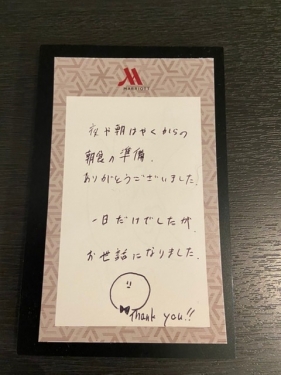 MARRIOTT
夜や朝はやくからの
朝食の準備、
ありがとうございました。
一日だけでしたが、
お世話になりました。
Thank you!!